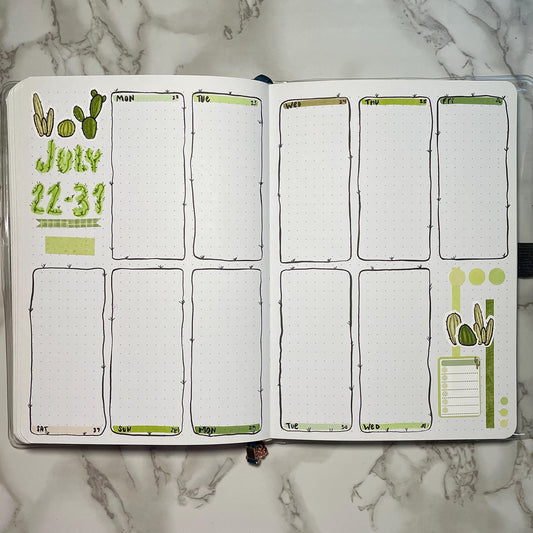 JULY
22-31
MON 22
TUE 23
WED 24
THU 25
FRI 26
SAT 27
SUN 28
MON 29
TUE 30
WED 31